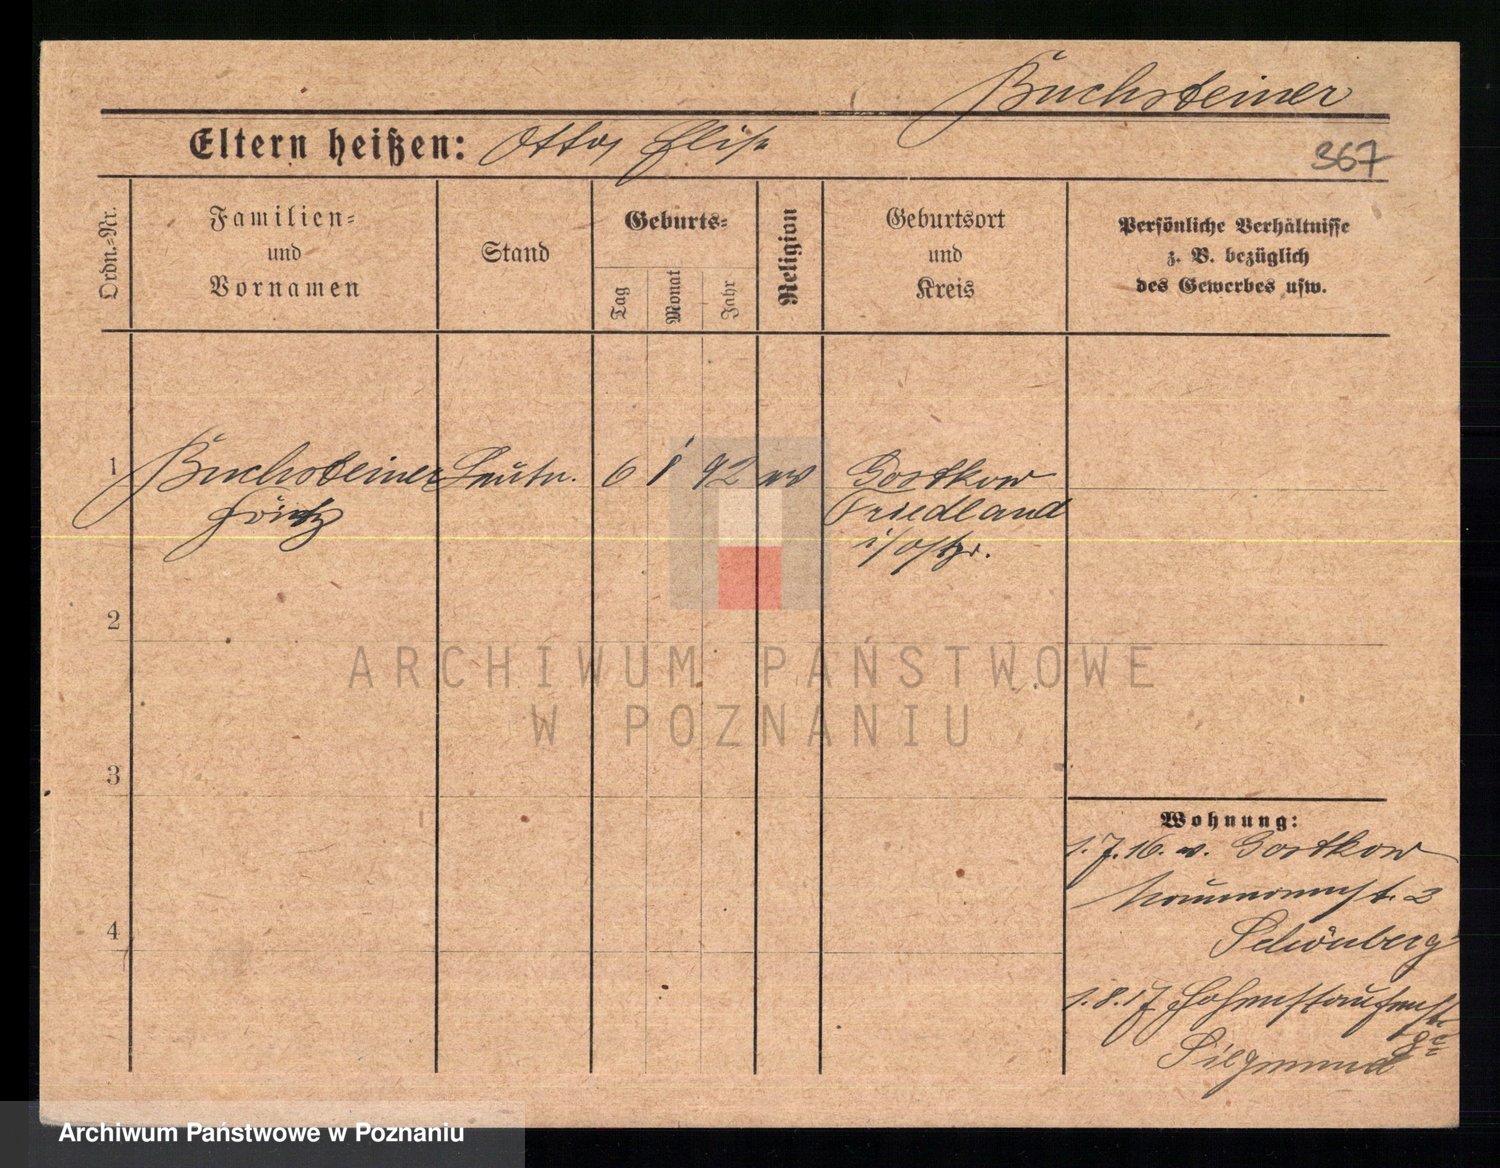 Buchsteiner
Eltern heißen: Otto, Elise
367
Ordn.=Nr.
Familien=
und
Vornamen
Stand
Geburts=
Tag
Monat
Jahr
Religion
Geburtsort
und
Kreis
Persönliche Verhältnisse
z. B. bezüglich
des Gewerbes usw.
1 Buchsteiner Leutn. 6 8 92 ev Gostkow
Fritz Friedland
i/Ostpr.
2
3
4
Wohnung:
1.7.16. v. Gostkow
Naumannst. 3
Schönberg
1.8.17 Hohenstaufenst.
Siegmund
ARCHIWUM PAŃSTWOWE
W POZNANIU
Archiwum Państwowe w Poznaniu